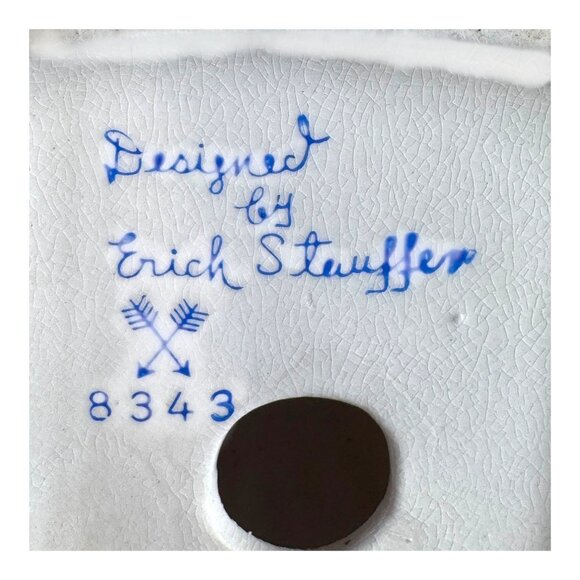 Designed
by
Erich Stauffer
8343